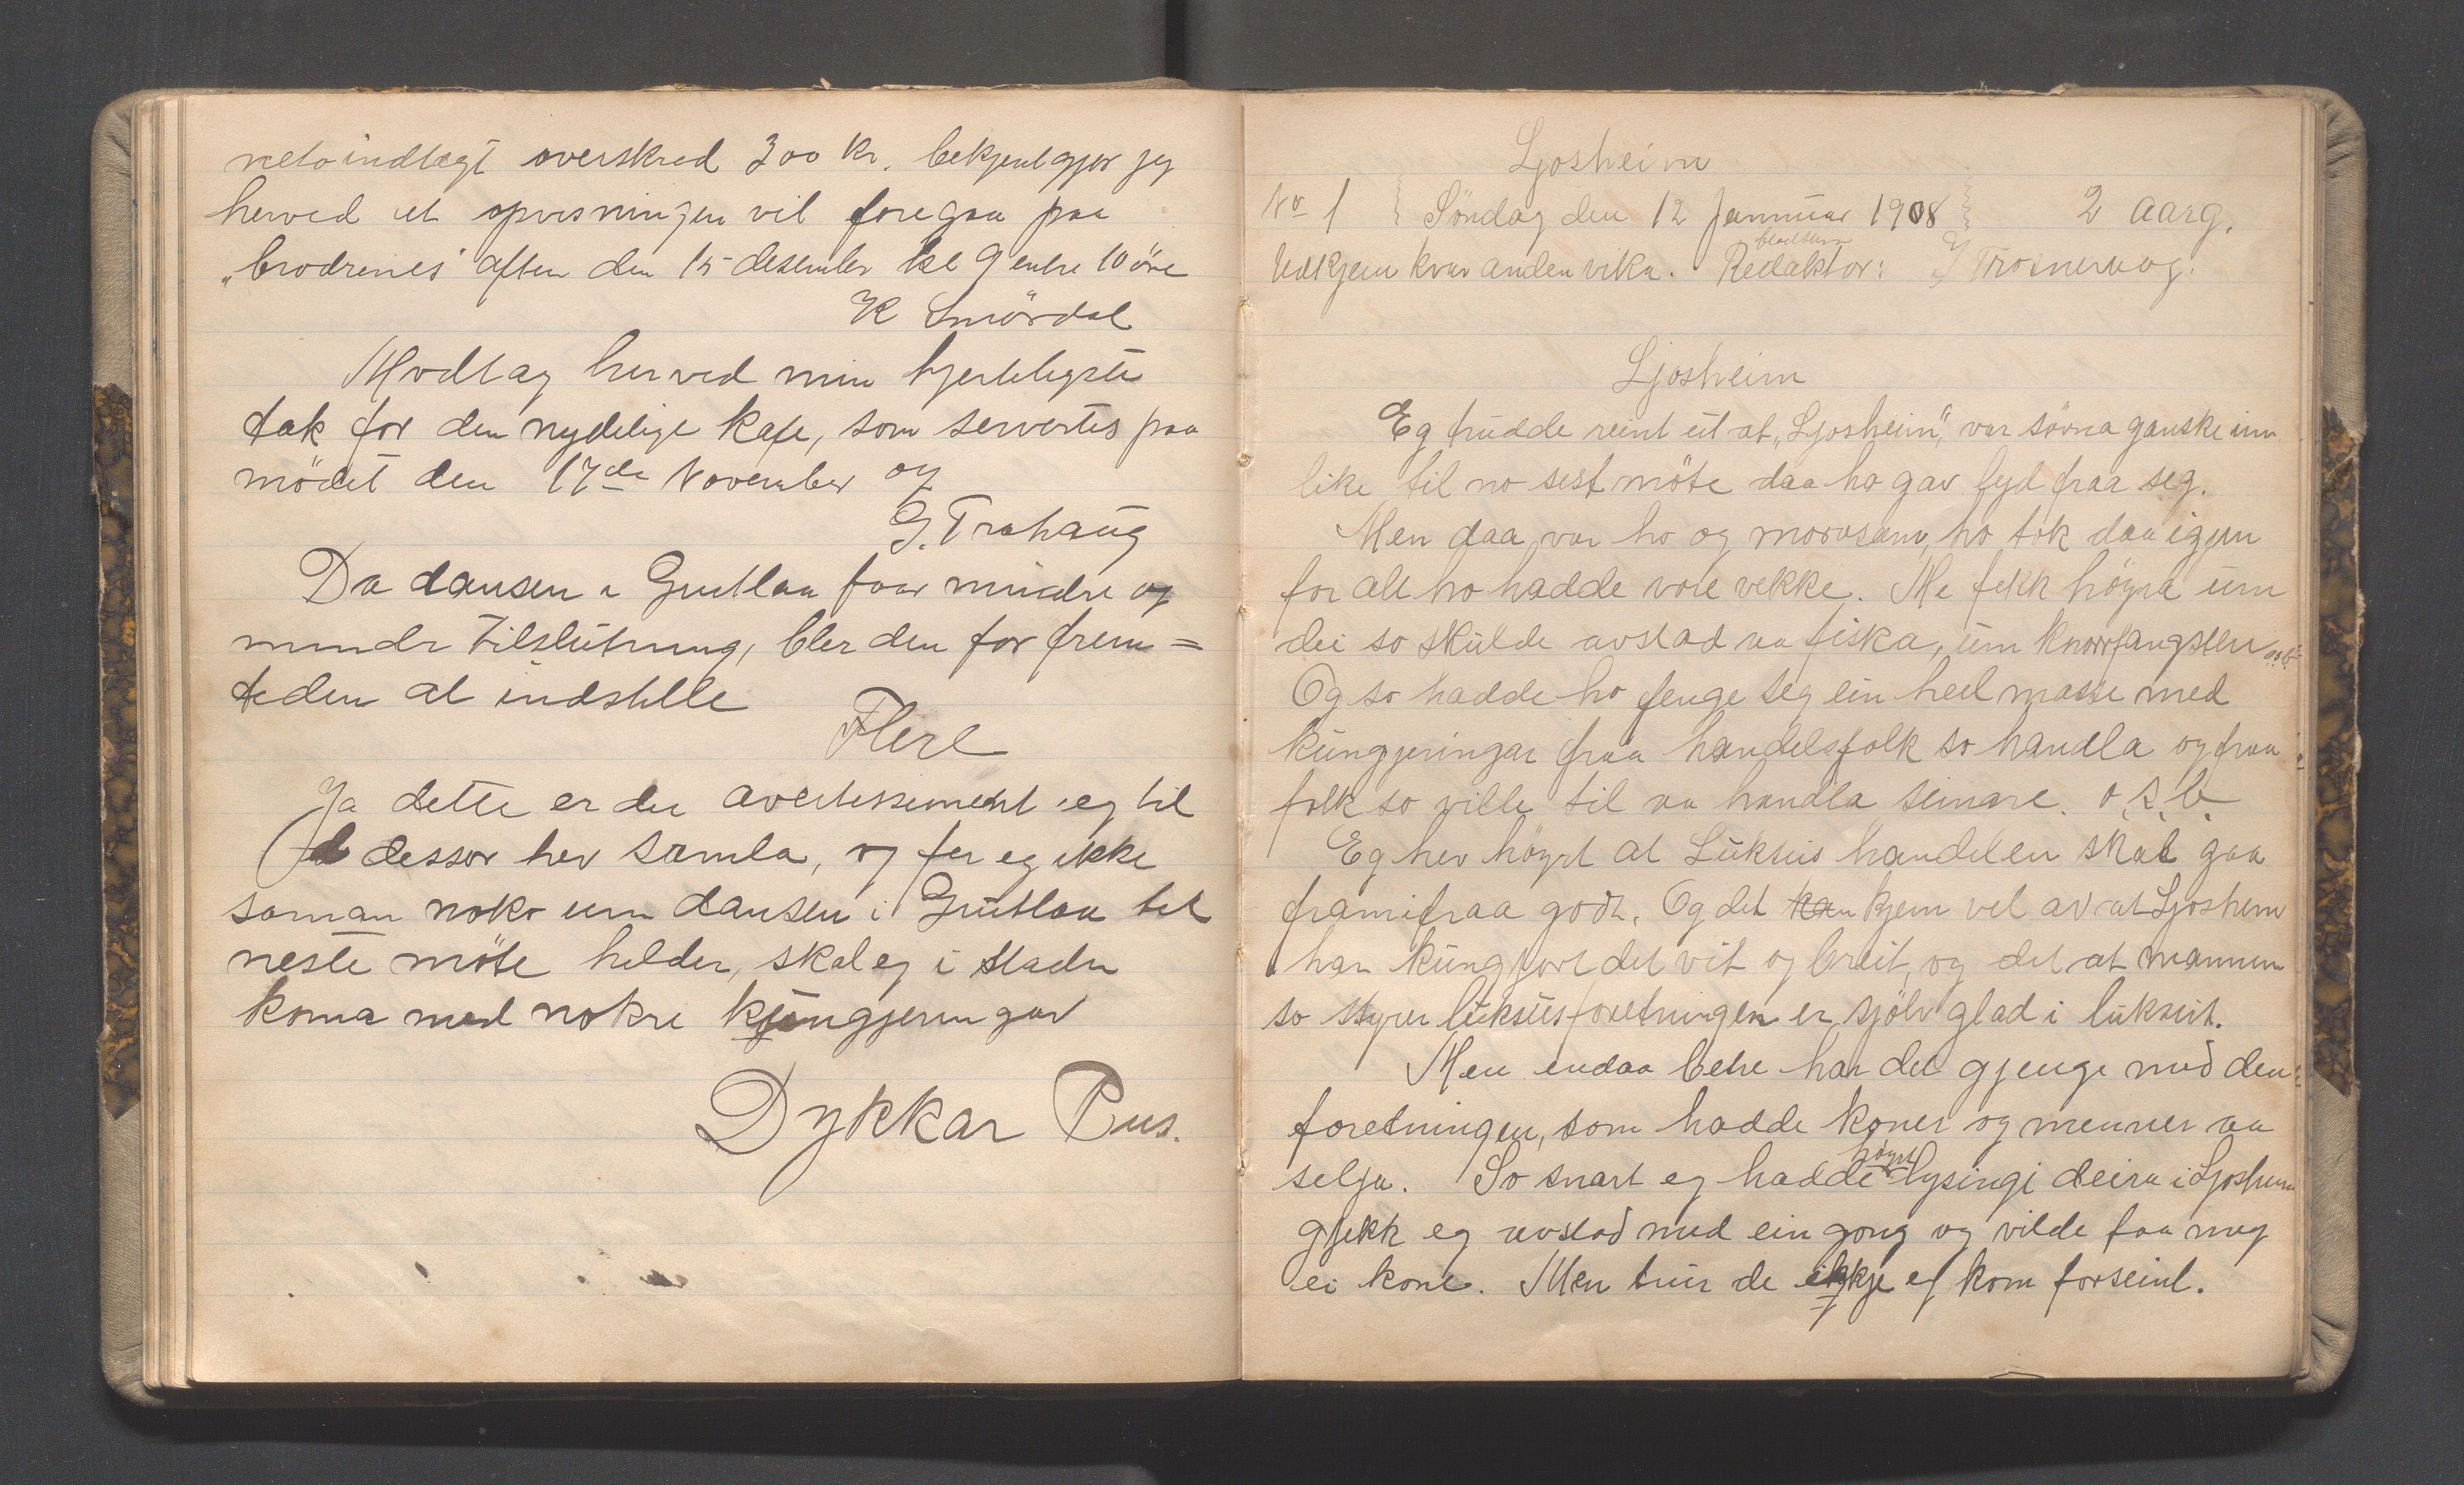 netoindtægt overskred 300 Kr. bekjentgjør jeg
herved at opvisningen vil foregaa paa
„brodrenes" aften den 15 desember kl 9 entre 10 öre
K Smördal
Modtag herved min hjerteligste
tak for den nydelige kafe, som servertes paa
mödet den 17de November og
G. Trohaug
Da dansen i Grutlaa faar mindre og
mindr Tilslutning, bler den for frem=
tiden at indstille
Flere
Ja dette er dei avertissement eg til
dessor hev samla, og fer eg ikke
saman noko um dansen i Grutlaa til
neste möte helder, skal eg i staden
koma med nokre kungjeringar
Dykkar Pus.
Ljosheim
No 1 Söndag den 12 Januar 1908 2 Aarg.
Utkjem kvar anden vika. Redaktor:
Ljosheim
Eg trudde reint ut at „Ljosheim", var sovna ganske inn
like til no sist möte daa ho gav lyd fraa seg.
Men daa var ho og morosam, ho tok daa igjen
for alt ho hadde vore vekke. Me fekk högra um
dei so skulde avstad aa fiska, um Knorrfangsten osb
Og so hadde ho fenge seg ein heil masse med
kungjeringar fraa handelsfolk so handla og fraa
folk so ville til aa handla seinare. o.s.b.
Eg hev högrt at Luksus handelen skal gaa
framifraa godt. Og det kan kjem vel av at Ljosheim
har kungjort det vit og breit, og det at mannen
so styrer luksusforetningen er sjölv glad i luksus.
Men endaa betre har det gjenge med den
foretningen, som hadde koner og menner aa
selja. So snart eg hadde högrt lysingi deira i Ljosheim
gjekk eg avstad med ein gong og vilde faa meg
ei kone. Men trur de ikkje eg kom forseint.